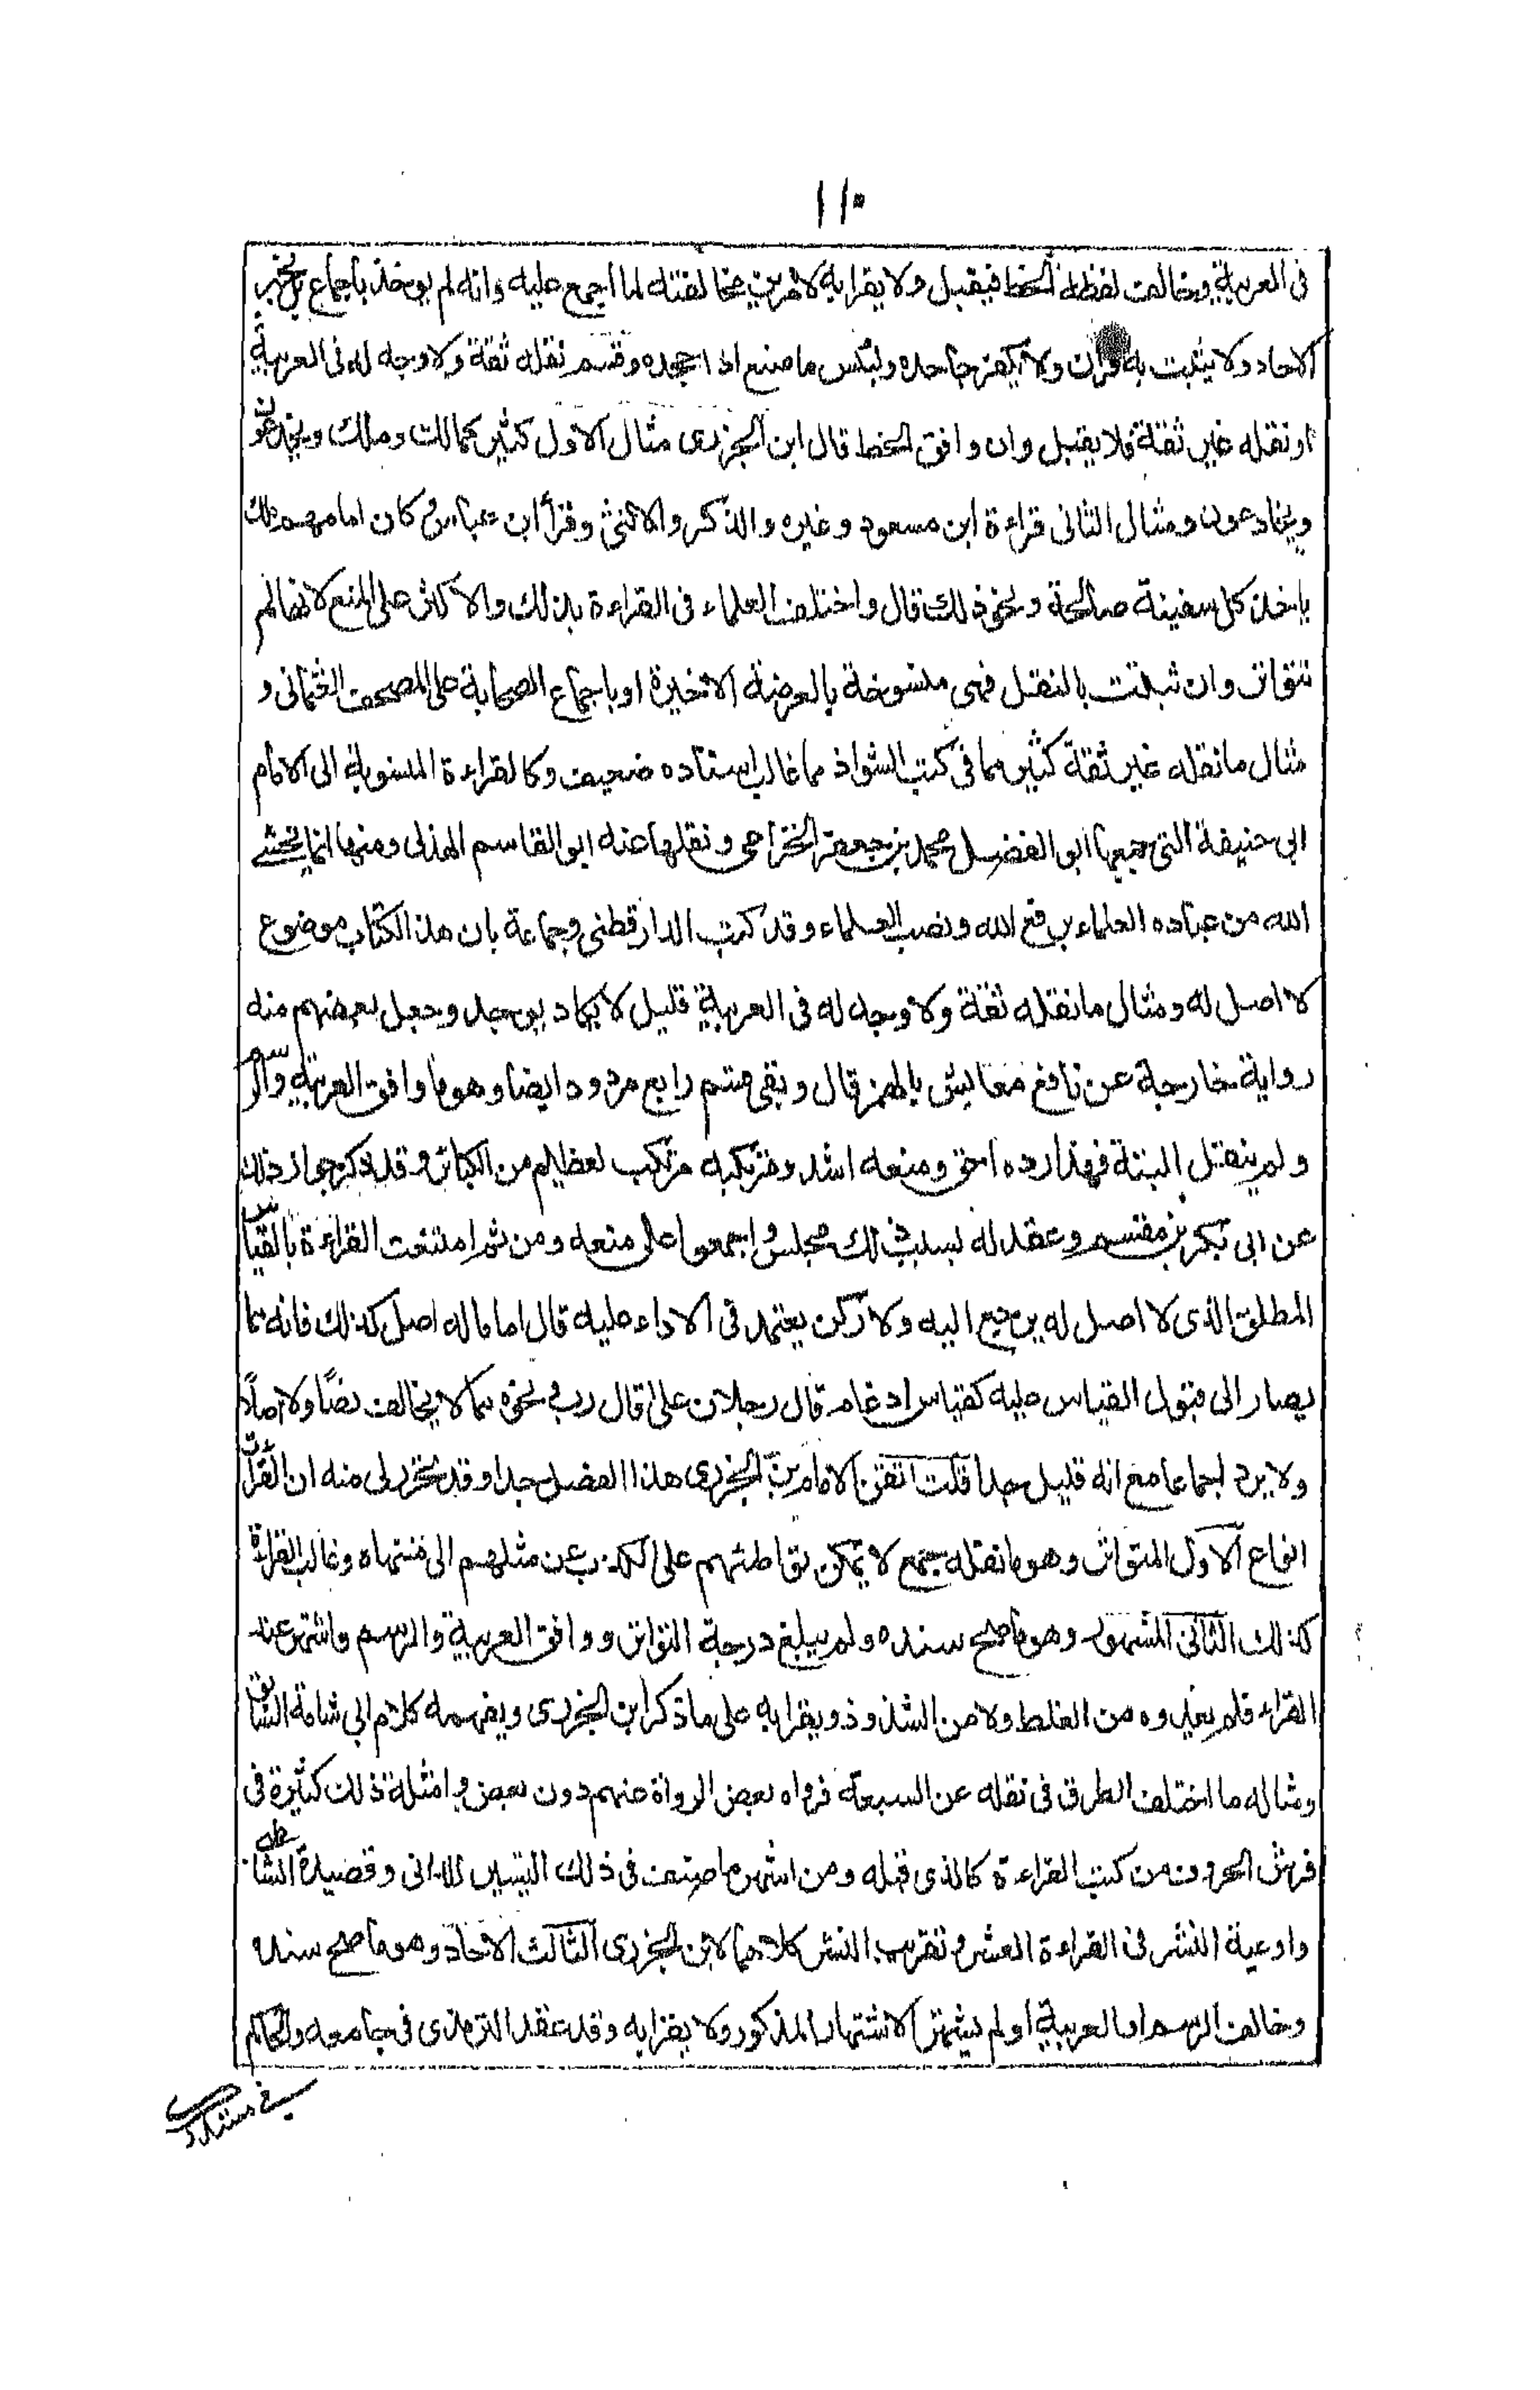 ١١٠
فى العربية وخالف لفظه الخط فيقبل ولا يقرا به لامرين مخالفته لما اجمع عليه وانه لم يوخذ باجماع بل بخبر
الاحاد ولا يثبت به قران ولا يكفر جاحده ولبئس ما صنع اذا جحده وقسم نقله ثقة ولا وجه له فى العربية
او نقله غير ثقة فلا يقبل وان وافق الخط قال ابن الجزرى مثال الاول كثير كمالك وملك ويخدعون
ويخادعون ومثال الثانى قراءة ابن مسعود وغيره والذكر والانثى وقرأ ابن عباس وكان امامهم ملك
ياخذ كل سفينة صالحة ونحو ذلك قال واختلف العلماء فى القراءة بذلك والاكثر على المنع لانها لم
تتواتر وان ثبتت بالنقل فهى منسوخة بالعرضة الاخيرة او باجماع الصحابة على المصحف العثمانى و
مثال ما نقله غير ثقة كثير مما فى كتب الشواذ مما غالب اسناده ضعيف وكالقراءة المنسوبة الى الامام
ابى حنيفة التى جمعها ابو الفضل محمد بن جعفر الخزاعى ونقلها عنه ابو القاسم الهذلى ومنها انما يخشى
الله من عباده العلماء برفع الله ونصب العلماء وقد كتب الدارقطنى وجماعة بان هذا الكتاب موضوع
لا اصل له ومثال ما نقله ثقة ولا وجه له فى العربية قليل لا يكاد يوجد وجعل بعضهم منه
رواية خارجة عن نافع معائش بالهمز قال وبقى قسم رابع مردود ايضا وهو ما وافق العربية والرسم
ولم ينقل البتة فهذا رده احق ومنعه اشد ومرتكبه مرتكب لعظيم من الكبائر وقد ذكر جواز ذلك
عن ابى بكر بن مقسم وعقد له بسبب ذلك مجلس واجمعوا على منعه ومن ثم امتنعت القراءة بالقياس
المطلق الذى لا اصل له يرجع اليه ولا ركن يعتمد فى الاداء عليه قال اما ما له اصل كذلك فانه مما
يصار الى قبول القياس عليه كقياس ادغام قال رجلان على قال رب ونحوه مما لا يخالف نصًا ولا اصلًا
ولا يرد اجماعا مع انه قليل جدا قلت اتقن الامام بن الجزرى هذا الفصل جدا وقد تحرر لى منه ان القراءت
انواع الاول المتواتر وهو ما نقله جمع لا يمكن تواطئهم على الكذب عن مثلهم الى منتهاه وغالب القراءة
كذلك الثانى المشهور وهو ما صح سنده ولم يبلغ درجة التواتر ووافق العربية والرسم واشتهر عند
القراء فلم يعدوه من الغلط ولا من الشذوذ ويقرا به على ما ذكر ابن الجزرى ويفهمه كلام ابى شامة السابق
ومثاله ما اختلف الطرق فى نقله عن السبعة فرواه بعض الرواة عنهم دون بعض وامثلة ذلك كثيرة فى
فرش الحروف من كتب القراءة كالذى قبله ومن اشهر ما صنف فى ذلك التيسير للدانى وقصيدة الشاطبى
واوعية النشر فى القراءة العشر وتقريب النشر كلاهما لابن الجزرى الثالث الاحاد وهو ما صح سنده
وخالف الرسم او العربية او لم يشتهر الاشتهار المذكور ولا يقرا به وقد عقد الترمذى فى جامعه والحاكم
فى مستدركه